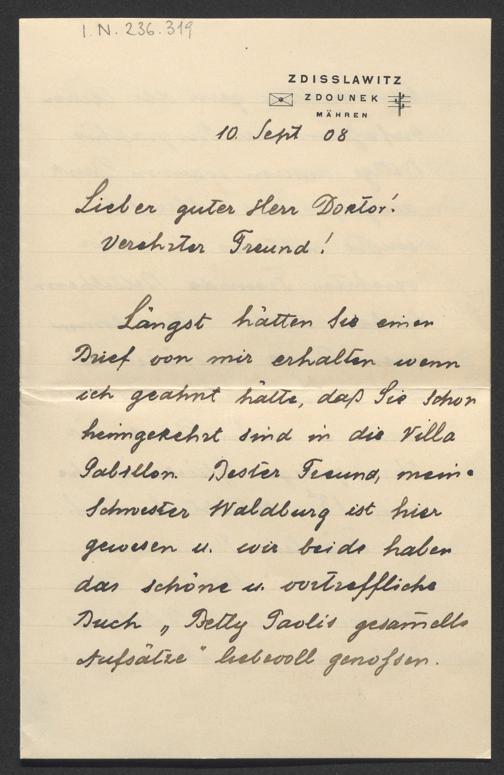 I.N. 236.319
ZDISSLAWITZ
ZDOUNEK
MÄHREN
10. Sept 08
Lieber guter Herr Doktor!
Verehrter Freund!
Längst hätten Sie einen
Brief von mir erhalten wenn
ich geahnt hätte, daß Sie schon
heimgekehrt sind in die Villa
Gabillon. Bester Freund, meine
Schwester Waldburg ist hier
gewesen u. wir beide haben
das schöne u. vortreffliche
Buch „Betty Paolis gesam̅elte
Aufsätze" liebevoll genoßen.